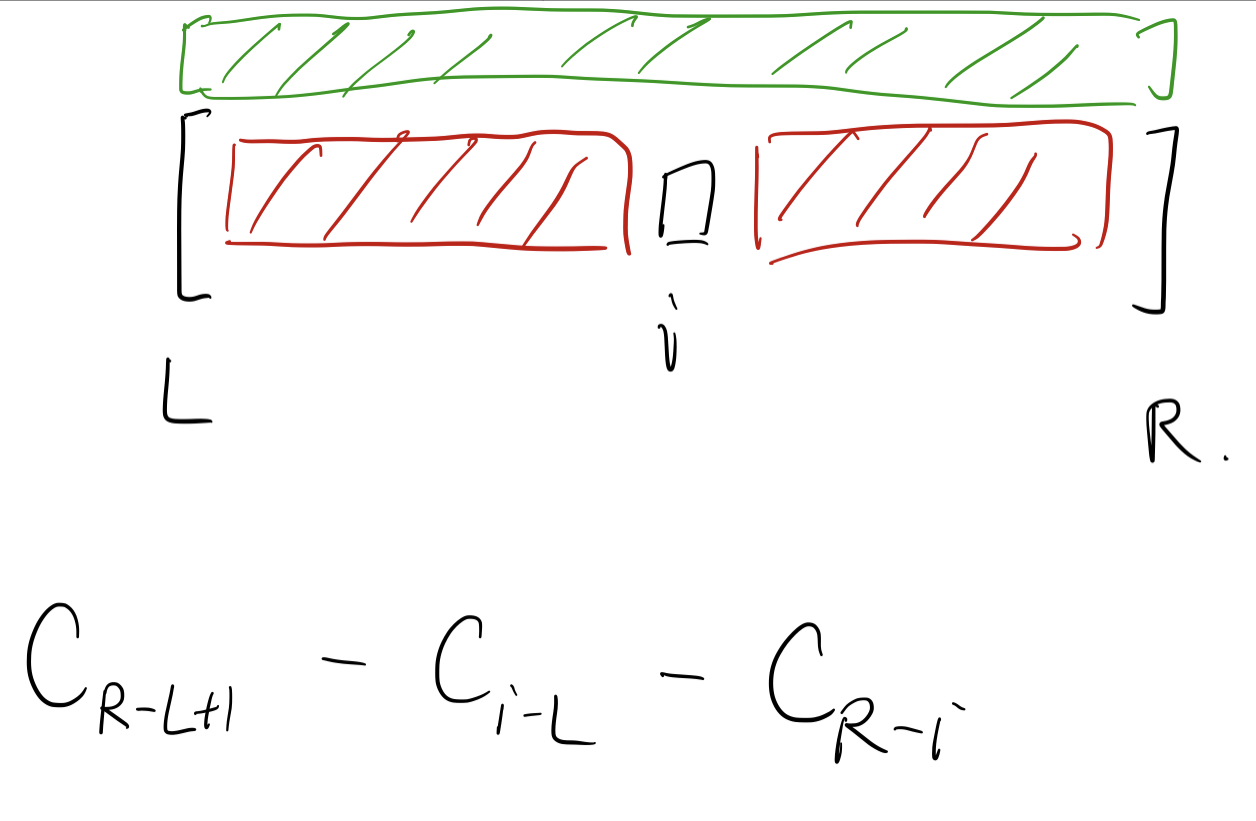 [ ]
[ ]
i
L
R.
C_{R-L+1} - C_{i-L} - C_{R-i}